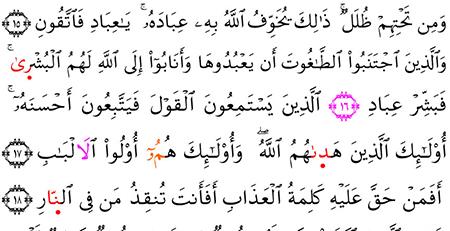 وَمِن تَحْتِهِمْ ظُلَلٌۚ ذَٰلِكَ يُخَوِّفُ ٱللَّهُ بِهِۦ عِبَادَهُۥۚ يَٰعِبَادِ فَٱتَّقُونِ ١٥
وَٱلَّذِينَ ٱجْتَنَبُوا۟ ٱلطَّٰغُوتَ أَن يَعْبُدُوهَا وَأَنَابُوٓا۟ إِلَى ٱللَّهِ لَهُمُ ٱلْبُشْر۪ىٰۚ
فَبَشِّرْ عِبَادِ ١٦ ٱلَّذِينَ يَسْتَمِعُونَ ٱلْقَوْلَ فَيَتَّبِعُونَ أَحْسَنَهُۥٓۚ
أُو۟لَٰٓئِكَ ٱلَّذِينَ هَد۪ىٰهُمُ ٱللَّهُۖ وَأُو۟لَٰٓئِكَ هُمُۥٓ أُو۟لُوا۟ ٱلَالْبَٰبِ ١٧
أَفَمَنْ حَقَّ عَلَيْهِ كَلِمَةُ ٱلْعَذَابِ أَفَأَنتَ تُنقِذُ مَن فِى ٱلنّ۪ارِ ١٨